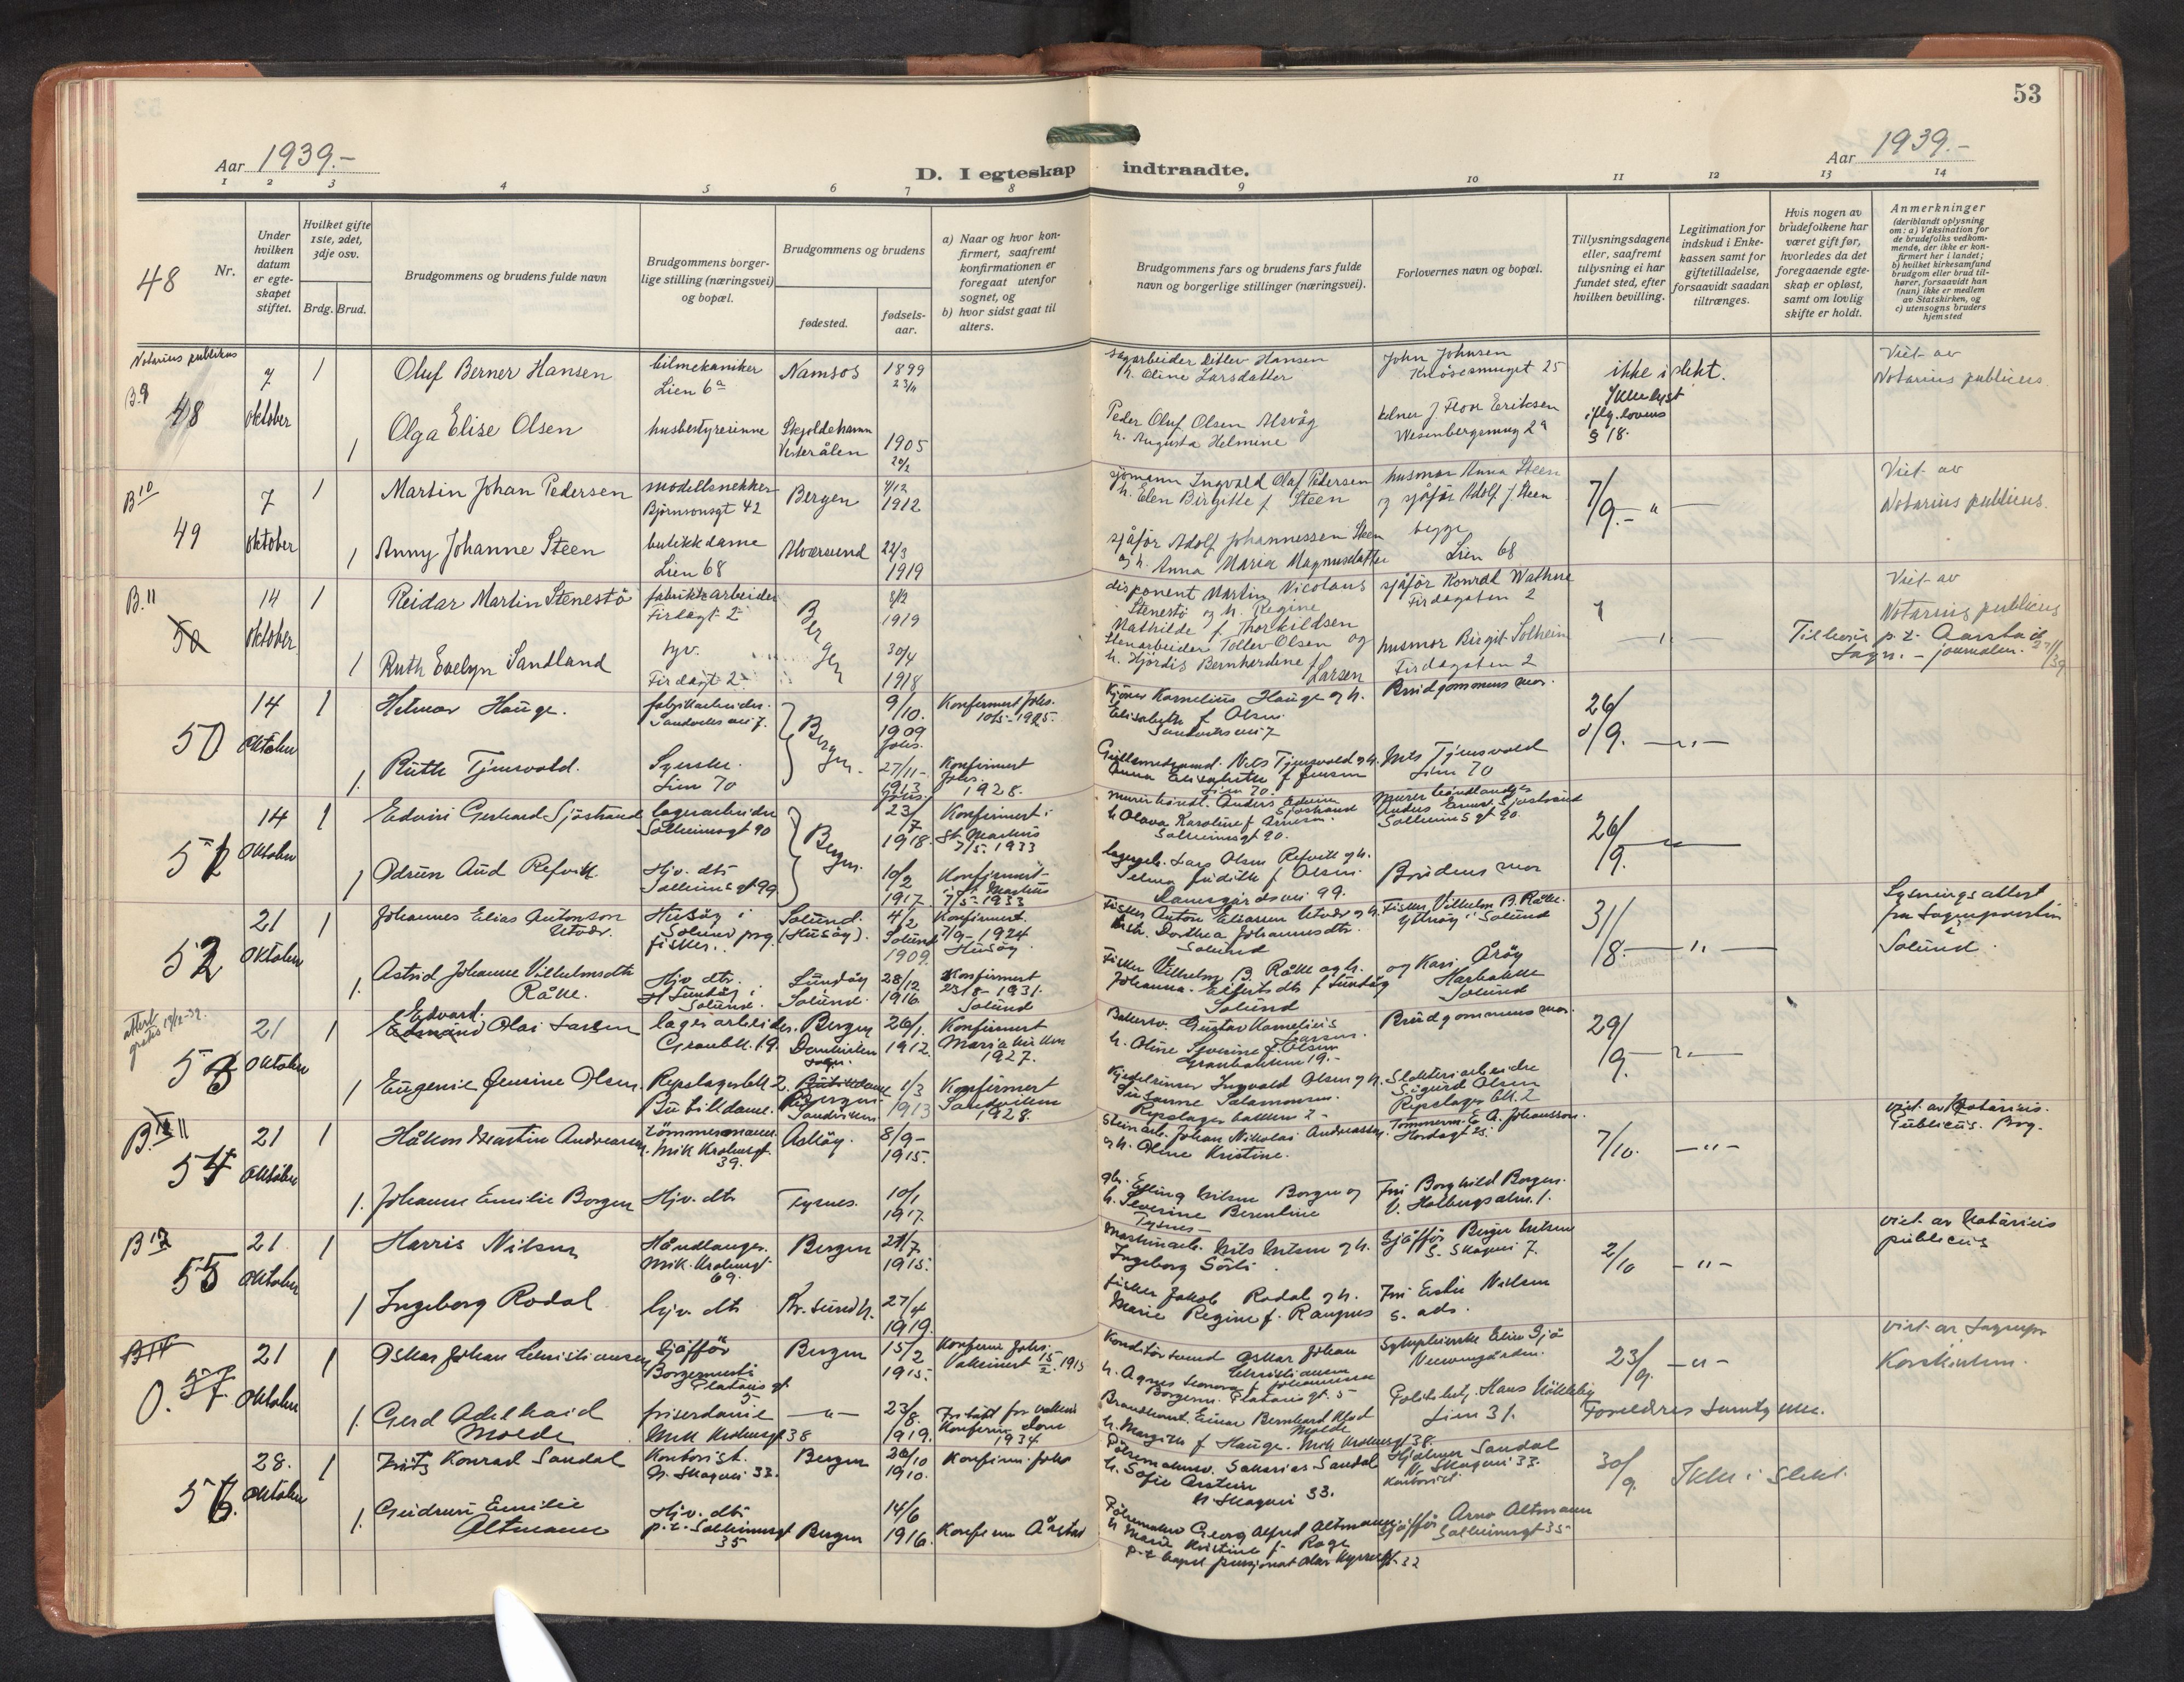 53
Aar 1939.-
D. I egteskap indtraadte.
Aar 1939.-
1 2 3 4 5 6 7 8 9 10 11 12 13 14
48
Nr.
Under hvilken datum er egteskapet stiftet.
Hvilket gifte 1ste, 2det, 3dje osv.
Brdg. Brud.
Brudgommens og brudens fulde navn
Brudgommens borgerlige stilling (næringsvei) og bopæl.
Brudgommens og brudens
fødested.
fødselsaar.
a) Naar og hvor konfirmert, saafremt konfirmationen er foregaat utenfor sognet, og
b) hvor sidst gaat til alters.
Brudgommens fars og brudens fars fulde navn og borgerlige stillinger (næringsvei).
Forlovernes navn og bopæl.
Tillysningsdagene eller, saafremt tillysning ei har fundet sted, efter hvilken bevilling.
Legitimation for indskud i Enkekassen samt for giftetilladelse, forsaavidt saadan tiltrænges.
Hvis nogen av brudefolkene har været gift før, hvorledes da det foregaaende egteskap er opløst, samt om lovlig skifte er holdt.
Anmerkninger
(deriblandt oplysning om: a) Vaksination for de brudefolks vedkommende, der ikke er konfirmert her i landet; b) hvilket kirkesamfund brudgom eller brud tilhører, forsaavidt han (hun) ikke er medlem av Statskirken, og c) utensogns bruders hjemsted
Notarius publikus
B.9
48
7 oktober
1
Oluf Berner Hansen
bilmekaniker
Lien 6a
Namsos
1899
23/11
sagarbeider Detlev Hansen
h. Oline Larsdatter
John Johnsen
Knøsesmuget 25
ikke i slekt.
Viet av
Notarius publicus
1
Olga Elise Olsen
husbestyrerinne
Skjoldehamn
Vesterålen
1905
20/2
Peder Oluf Olsen Alsvåg
h. Augusta Helmine
kelner J. Floor Eriksen
Wesenbergsmug 2a
Ikke lyst
iflg. lovens
§ 18.
B10
49
7 oktober
1
Martin Johan Pedersen
modellsnekker
Bjørnsonsgt 42
Bergen
4/12
1912
sjømann Ingvald Olaf Pedersen
h. Elen Birgitte f Steen
husmor Anna Steen
og sjåfør Adolf J. Steen
7/9.- "
Viet av
Notarius publicus.
1
Anny Johanne Steen
butikkdame
Lien 68
Alversund
22/3
1919
sjåfør Adolf Johannessen Steen
og h. Anna Maria Magnusdatter
begge
Lien 68
B.11
50
14 oktober
1
Reidar Martin Stenestø
fabrikkarbeider
Firdagt 2
Bergen
1919
disponent Martin Nicolaus
Stenestø og h. Regine
Mathilde f. Thorkildsen
sjåfør Konrad Wathne
Firdagaten 2
Viet av
Notarius publicus
1
Ruth Evelyn Sandland
hjv.
Firdagt 2
30/4
1918
Stenarbeider Tollev Olsen og
h. Hjørdis Bernhardine f Larsen
husmor Birgit Solheim
Firdagaten 2
Tilhøris p.t. Aarstad
sogn. - journalen. 27/11 39
50
14 oktober
1
Helmar Hauge.
fabrikarbeider.
Sandviksvei 7.
Bergen.
9/10.
1909
Johs.
Konfirmert Johs.
10/5-1925.
Kjører Kornelius Hauge og h.
Elisabeth f Olsen
Sandviksvei 7
Brudgommens mor.
26/9.
1.
Ruth Tjensvold.
Syerske.
Lien 70
27/11-
1913
Johs.
Konfirmert
Johs.
1928.
Nils Tjensvold og h.
Anna Elisabeth f Jensen
Lien 70.
Nils Tjensvold
Lien 70
51
14 oktober
1
Edvin Gerhard Sjøstrand
lagerarbeider
Solheimsgt 90
Bergen.
23/7
1918.
Konfirmert i
St. Markus
7/5. 1933
Murerhandl. Anders Edvin Sjøstrand
h Olava Karoline f Arnesen.
Solheimsgt 90.
Solheimsgt 90.
26/9.
1
Odrun Aud Refvik
Hjv. dtr
Solheimsgt 99
10/2
1917
Konfirmert
i St. Markus
7/5-1933
Lars Olsen Refvik og h.
Selma Judith f Olsen.
Damsgårdsvei 99.
Brudens mor
52
21 oktober
1
Johannes Elias Antonson
Utvær.
Husøy i
Solund prg.
fisker.
Solund.
(Husøy).
4/2
Solund
1909.
Konfirmert.
7/9-1924
Husøy.
Fisker Anton Eliassen Utvær og h.
Dorthea Johannesdtr.
Solund
Fisker Vilhelm B. Råke.
Ytterøy i Solund
31/8.
Lysningsattest
fra Sognepresten
i
Solund.
1.
Astrid Johanne Vilhelmsdtr
Råke.
Hjv. dtr.
Solund.
Sundøy
Solund.
28/12
1916
Konfirmert
23/8-1931.
Solund
Fisker Vilhelm B. Råke og h.
Johanna Eilertsdtr f Sundøy
Solund
og Kari Årøy
Harbakke
Solund
attest
gratis 19/12-39.
53
21 oktober
1
Edvard.
Edmund Olai Larsen
lagerarbeider.
Granbk. 19.
Bergen
Domkirken
sogn.
26/1.
1912.
Konfirmert
Mariakirken
1927.
Gustav Kornelius
Larsen.
h. Oline Severine f. Olsen
Granbakken 19.-
Brudgommens mor.
29/9.
1
Eugenie Jensine Olsen.
Repslagerbk 2.
Butikkdame.
Bergen
Sandviken
1/3
1913
Konfirmert
Sandviken
1928.
Kjedelrenser Ingvald Olsen og h.
Susanne Salamonsen.
Repslagerbakken 2-
Slakteriarbeider
Sigurd Olsen
Repslagerbk. 2
B. 11
54
21 oktober
1
Håkon Martin Andreassen
tømmermann.
Mik Krohnsgt.
39.
Askøy.
8/9-
1915.
Steinarb. Johan Nikolai Andreassen.
og h. Oline Kristine.
Tømmerm. E A. Johansson.
Hordagt 25.
7/10.
viet av Notarius.
Publicus. Brg.
1.
Johanne Emilie Borgen
Hjv. dtr
Tysnes.
10/1
1917.
gbr. Elling Nilsen Borgen og
h. Severine Berentine
Tysnes-
Fru Borghild Borgen.
L. Holbergsalm. 1.
B 12
55
21 oktober
1
Harris Nilsen
Håndlanger.
Mik. Krohnsgt.
69.
Bergen
21/7
1915.
Maskinarb. Nils Nilsen og h.
Ingeborg Sørli.
Sjåfør Birger Nilsen
S. Skogvei 7.
2/10
viet av Notarius
publicus
1
Ingeborg Rodal
hjv. dtr
Kr.sund N.
27/4
1919.
Fisker Jakob Rodal og h.
Marie Regine f. Rangnes
Fru Ester Nielsen
s. ads.
0. 57
21 oktober
1
Oskar Johan Christiansen
Sjåfør
Borgermester
Platous gt
5-
Bergen
15/2
1915.
Konfirm Johs.
Vaksinert 15/2. 1915
Konditorsvend Oskar Johan
Christiansen
h. Agnes Leonora f Johannessen
Borgerm. Platousgt. 5
23/9.
viet av Sognepr
Korskirken.
1.
Gerd Adelhaid
Molde
friserdame
Mik Krohnsgt 38
23/8.
1919.
1934
Einar Bernhard Klod
Molde
h. Margith f Hauge. Mik Krohnsgt 38.
Lien 31.
Foreldres samtykke.
56.
28. oktober
1
Konrad Sandal
Kontorist.
N. Skogvei 33.
Bergen
20/10
1910.
Konfirm. Johs
Pølsemaker Sakarias Sandal
h. Sofie
N Skogvei 33.
Hjalmar Sandal
N. Skogvei 33.
Kontorist
30/9.
Ikke i slekt.
1.
Gudrun Emilie
Altmann
Hjv. dtr
p.t. Solheimsgt
35
Bergen
14/6
1916.
Konfirm Årstad
Pølsemaker Georg Alfred Altmann
h Marie Kristine f. Roge
Sjåfør Arno Altmann
Solheimsgt 35